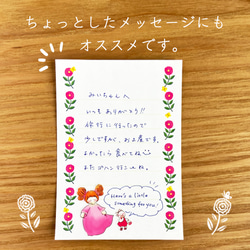 ちょっとしたメッセージにも
オススメです。
みいちゃんへ
いつもありがとう!!
旅行に行ったので
少しですが、お土産です。
よかったら食べてね
またゴハン行こーね。
Here's a little
something for you!